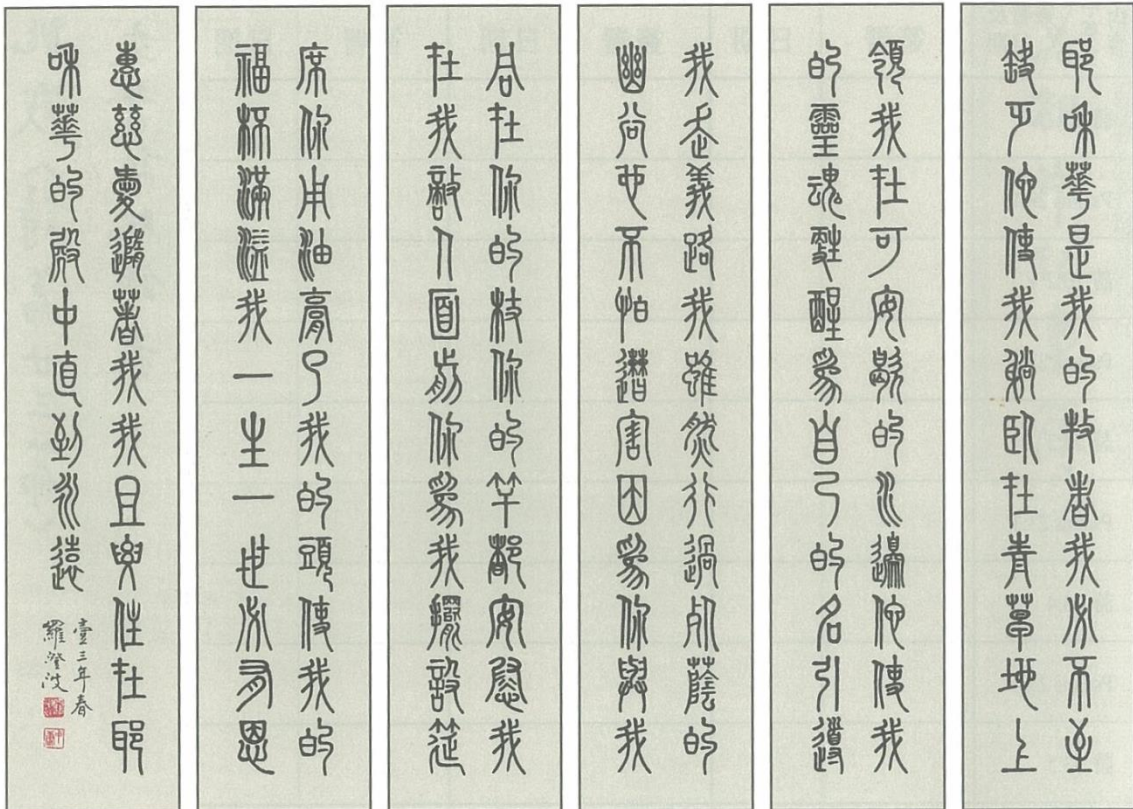 耶和華是我的牧者我必不至
缺乏他使我躺臥在青草地上
領我在可安歇的水邊他使我
的靈魂甦醒為自己的名引導
我走義路我雖然行過死蔭的
幽谷也不怕遭害因為你與我
同在你的杖你的竿都安慰我
在我敵人面前你為我擺設筵
席你用油膏了我的頭使我的
福杯滿溢我一生一世必有恩
惠慈愛隨著我我且要住在耶
和華的殿中直到永遠
壹三年春
羅澄波